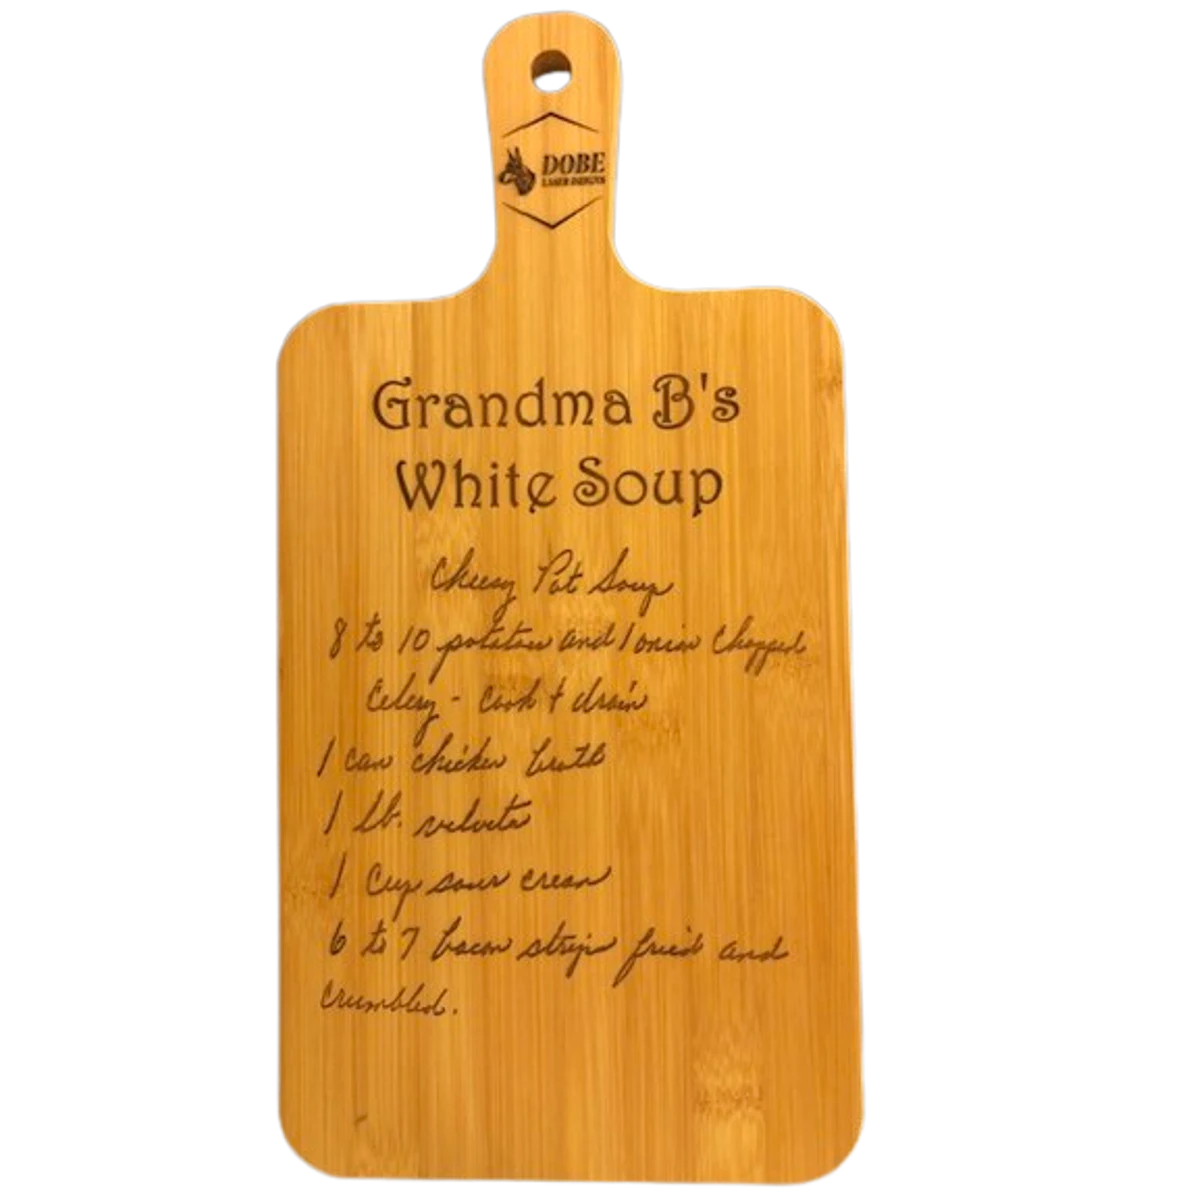 DOBE
LASER DESIGNS
Grandma B's
White Soup
Cheesy Pot Soup
8 to 10 potatoes and 1 onion chopped
Celery - Cook + drain
1 can chicken broth
1 lb. velveta
1 Cup sour cream
6 to 7 bacon strips fried and
crumbled.